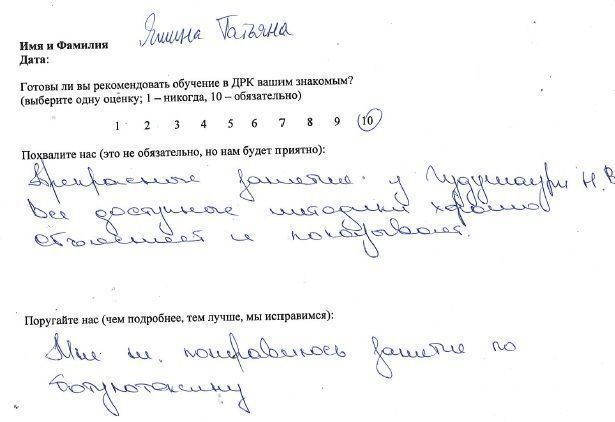 Яшина Татьяна
Имя и Фамилия
Дата:
Готовы ли вы рекомендовать обучение в ДРК вашим знакомым?
(выберите одну оценку; 1 – никогда, 10 – обязательно)
1 2 3 4 5 6 7 8 9 10
Похвалите нас (это не обязательно, но нам будет приятно):
Прекрасное занятие у Чудушаури Н.В
Все доступные методики хорошо
объясняет и показывает.
Поругайте нас (чем подробнее, тем лучше, мы исправимся):
Мне понравилось занятие по
ботулотоксину